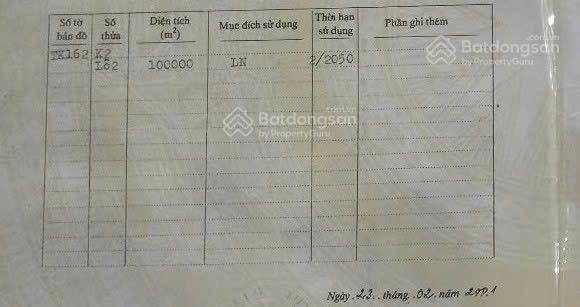 Số tờ bản đồ Số thửa Diện tích (m²) Mục đích sử dụng Thời hạn sử dụng Phần ghi thêm
TK162 K2
L62 100000 LN 2/2050
Batdongsan.com.vn
by PropertyGuru
Batdongsan.com.vn
by PropertyGuru
Batdongsan
by PropertyGuru
Ngày 23 tháng 02 năm 2001